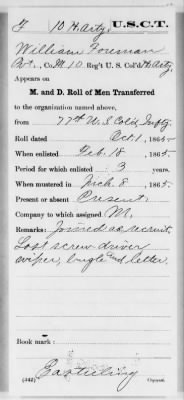 F 10 H. Arty. U.S.C.T.
William Foreman
Pvt., Co. M. 10 Reg't U.S. Col'd H. Arty.
Appears on
M. and D. Roll of Men Transferred
to the organization named above,
from 77th U.S. Col'd Inftry.
Roll dated Oct. 1, 1865.
When enlisted Feb. 18, 1865.
Period for which enlisted 3 years.
When mustered in Mch. 8, 1865.
Present or absent Present
Company to which assigned M.
Remarks: Joined as recruit,
Lost screw driver
wiper, bugle and letter.
Book mark:
(342) Copyist.